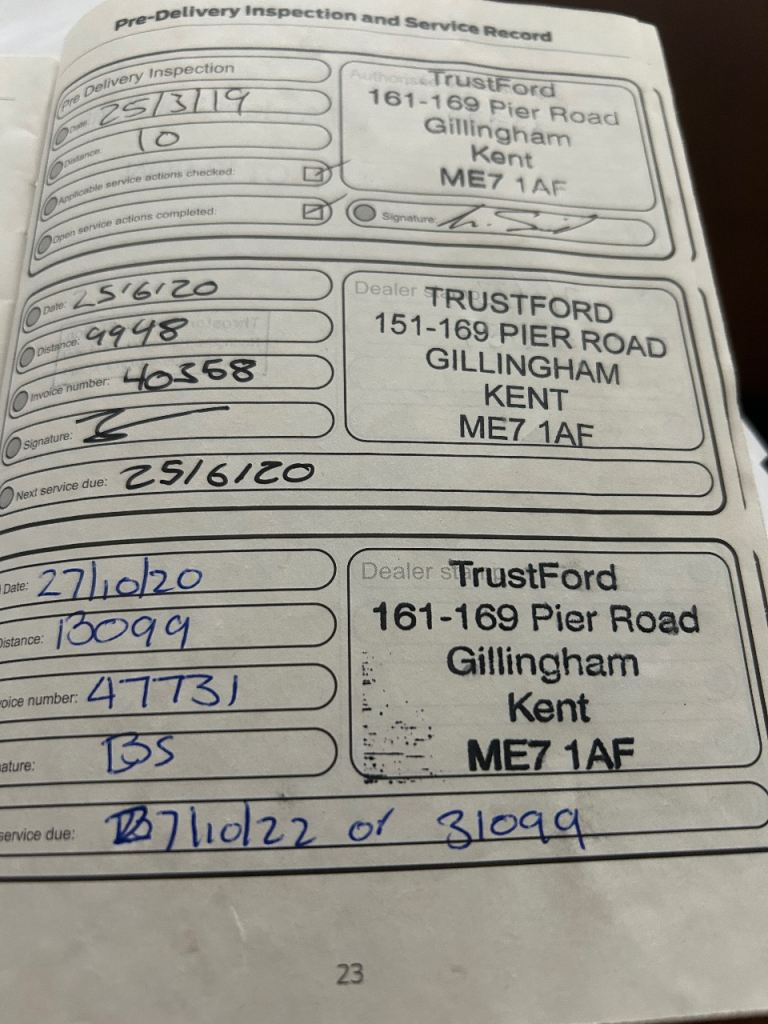 Pre-Delivery Inspection and Service Record
Pre Delivery Inspection
Date: 25/3/19
Distance: 10
Applicable service actions checked:
Open service actions completed:
TrustFord
161-169 Pier Road
Gillingham
Kent
ME7 1AF
Signature:
Date: 25/6/20
Distance: 9948
Invoice number: 40358
Signature:
Next service due: 25/6/20
Dealer
TRUSTFORD
151-169 PIER ROAD
GILLINGHAM
KENT
ME7 1AF
Date: 27/10/20
istance: 13099
voice number: 47731
ature: BS
service due: 7/10/22 or 31099
Dealer
TrustFord
161-169 Pier Road
Gillingham
Kent
ME7 1AF
23